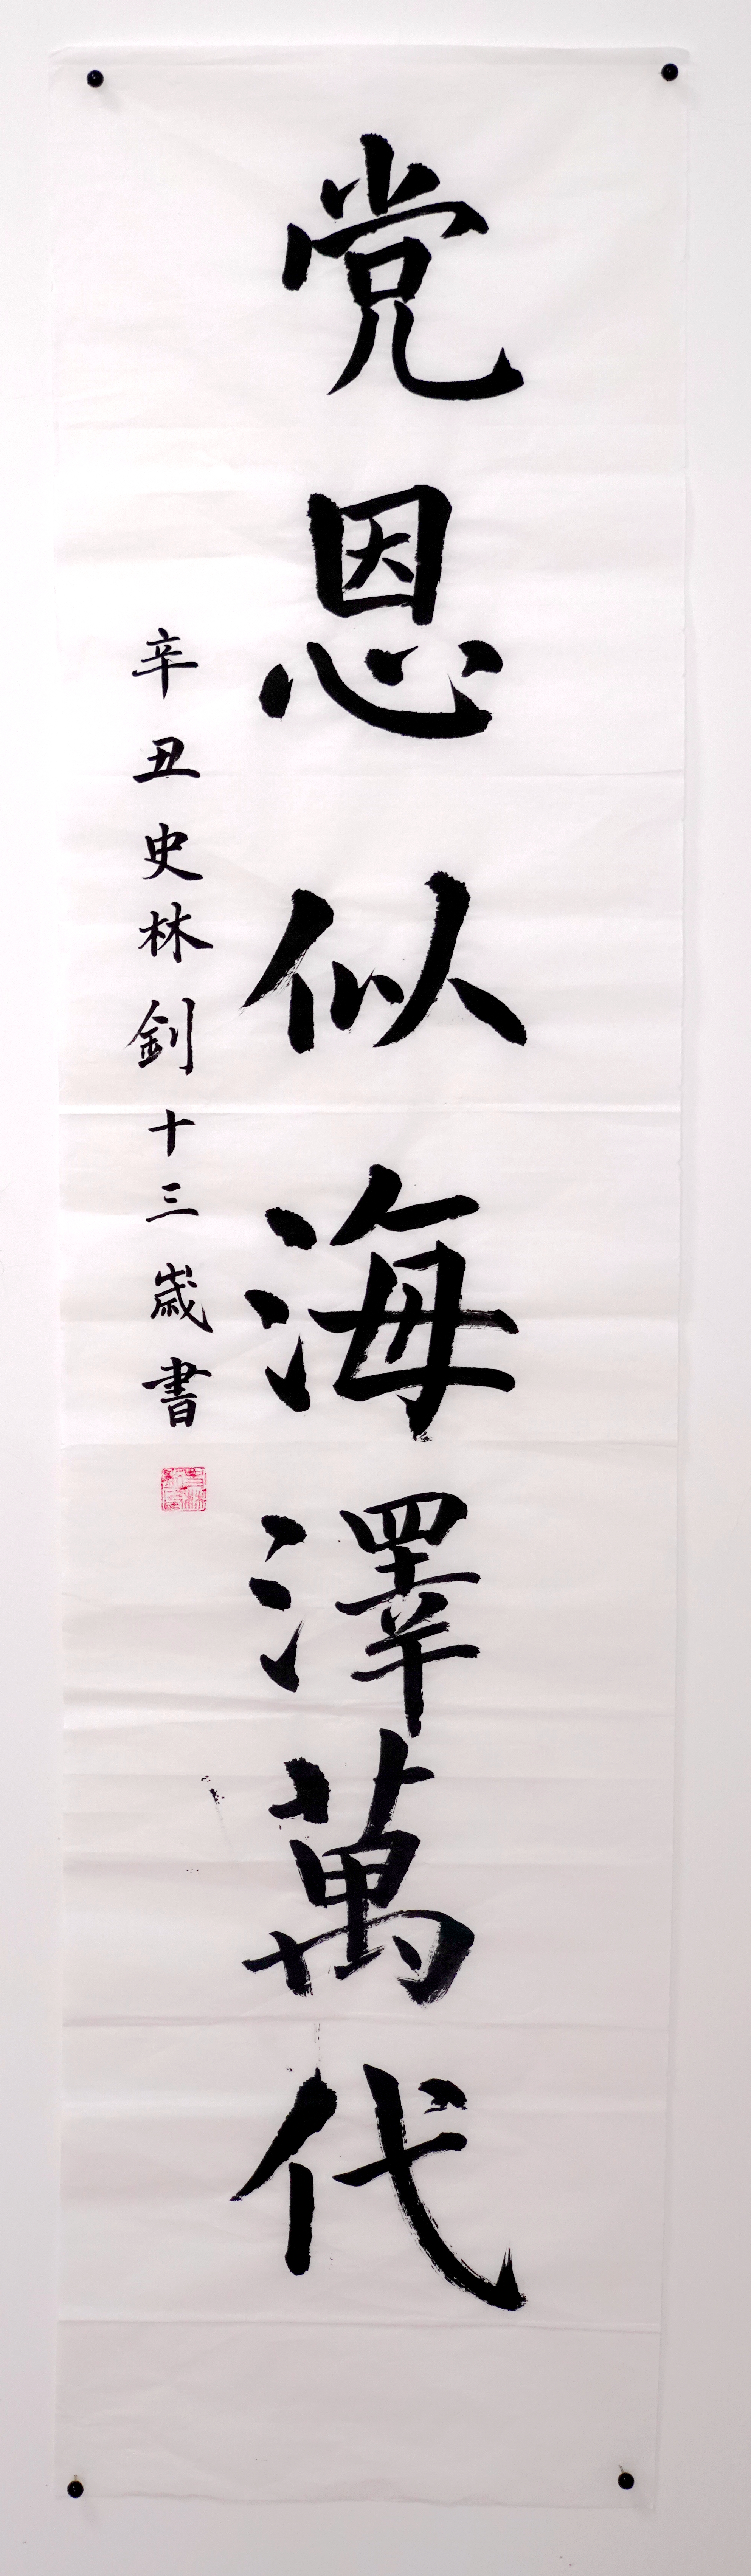 党恩似海澤萬代
辛丑史林釗十三歲書